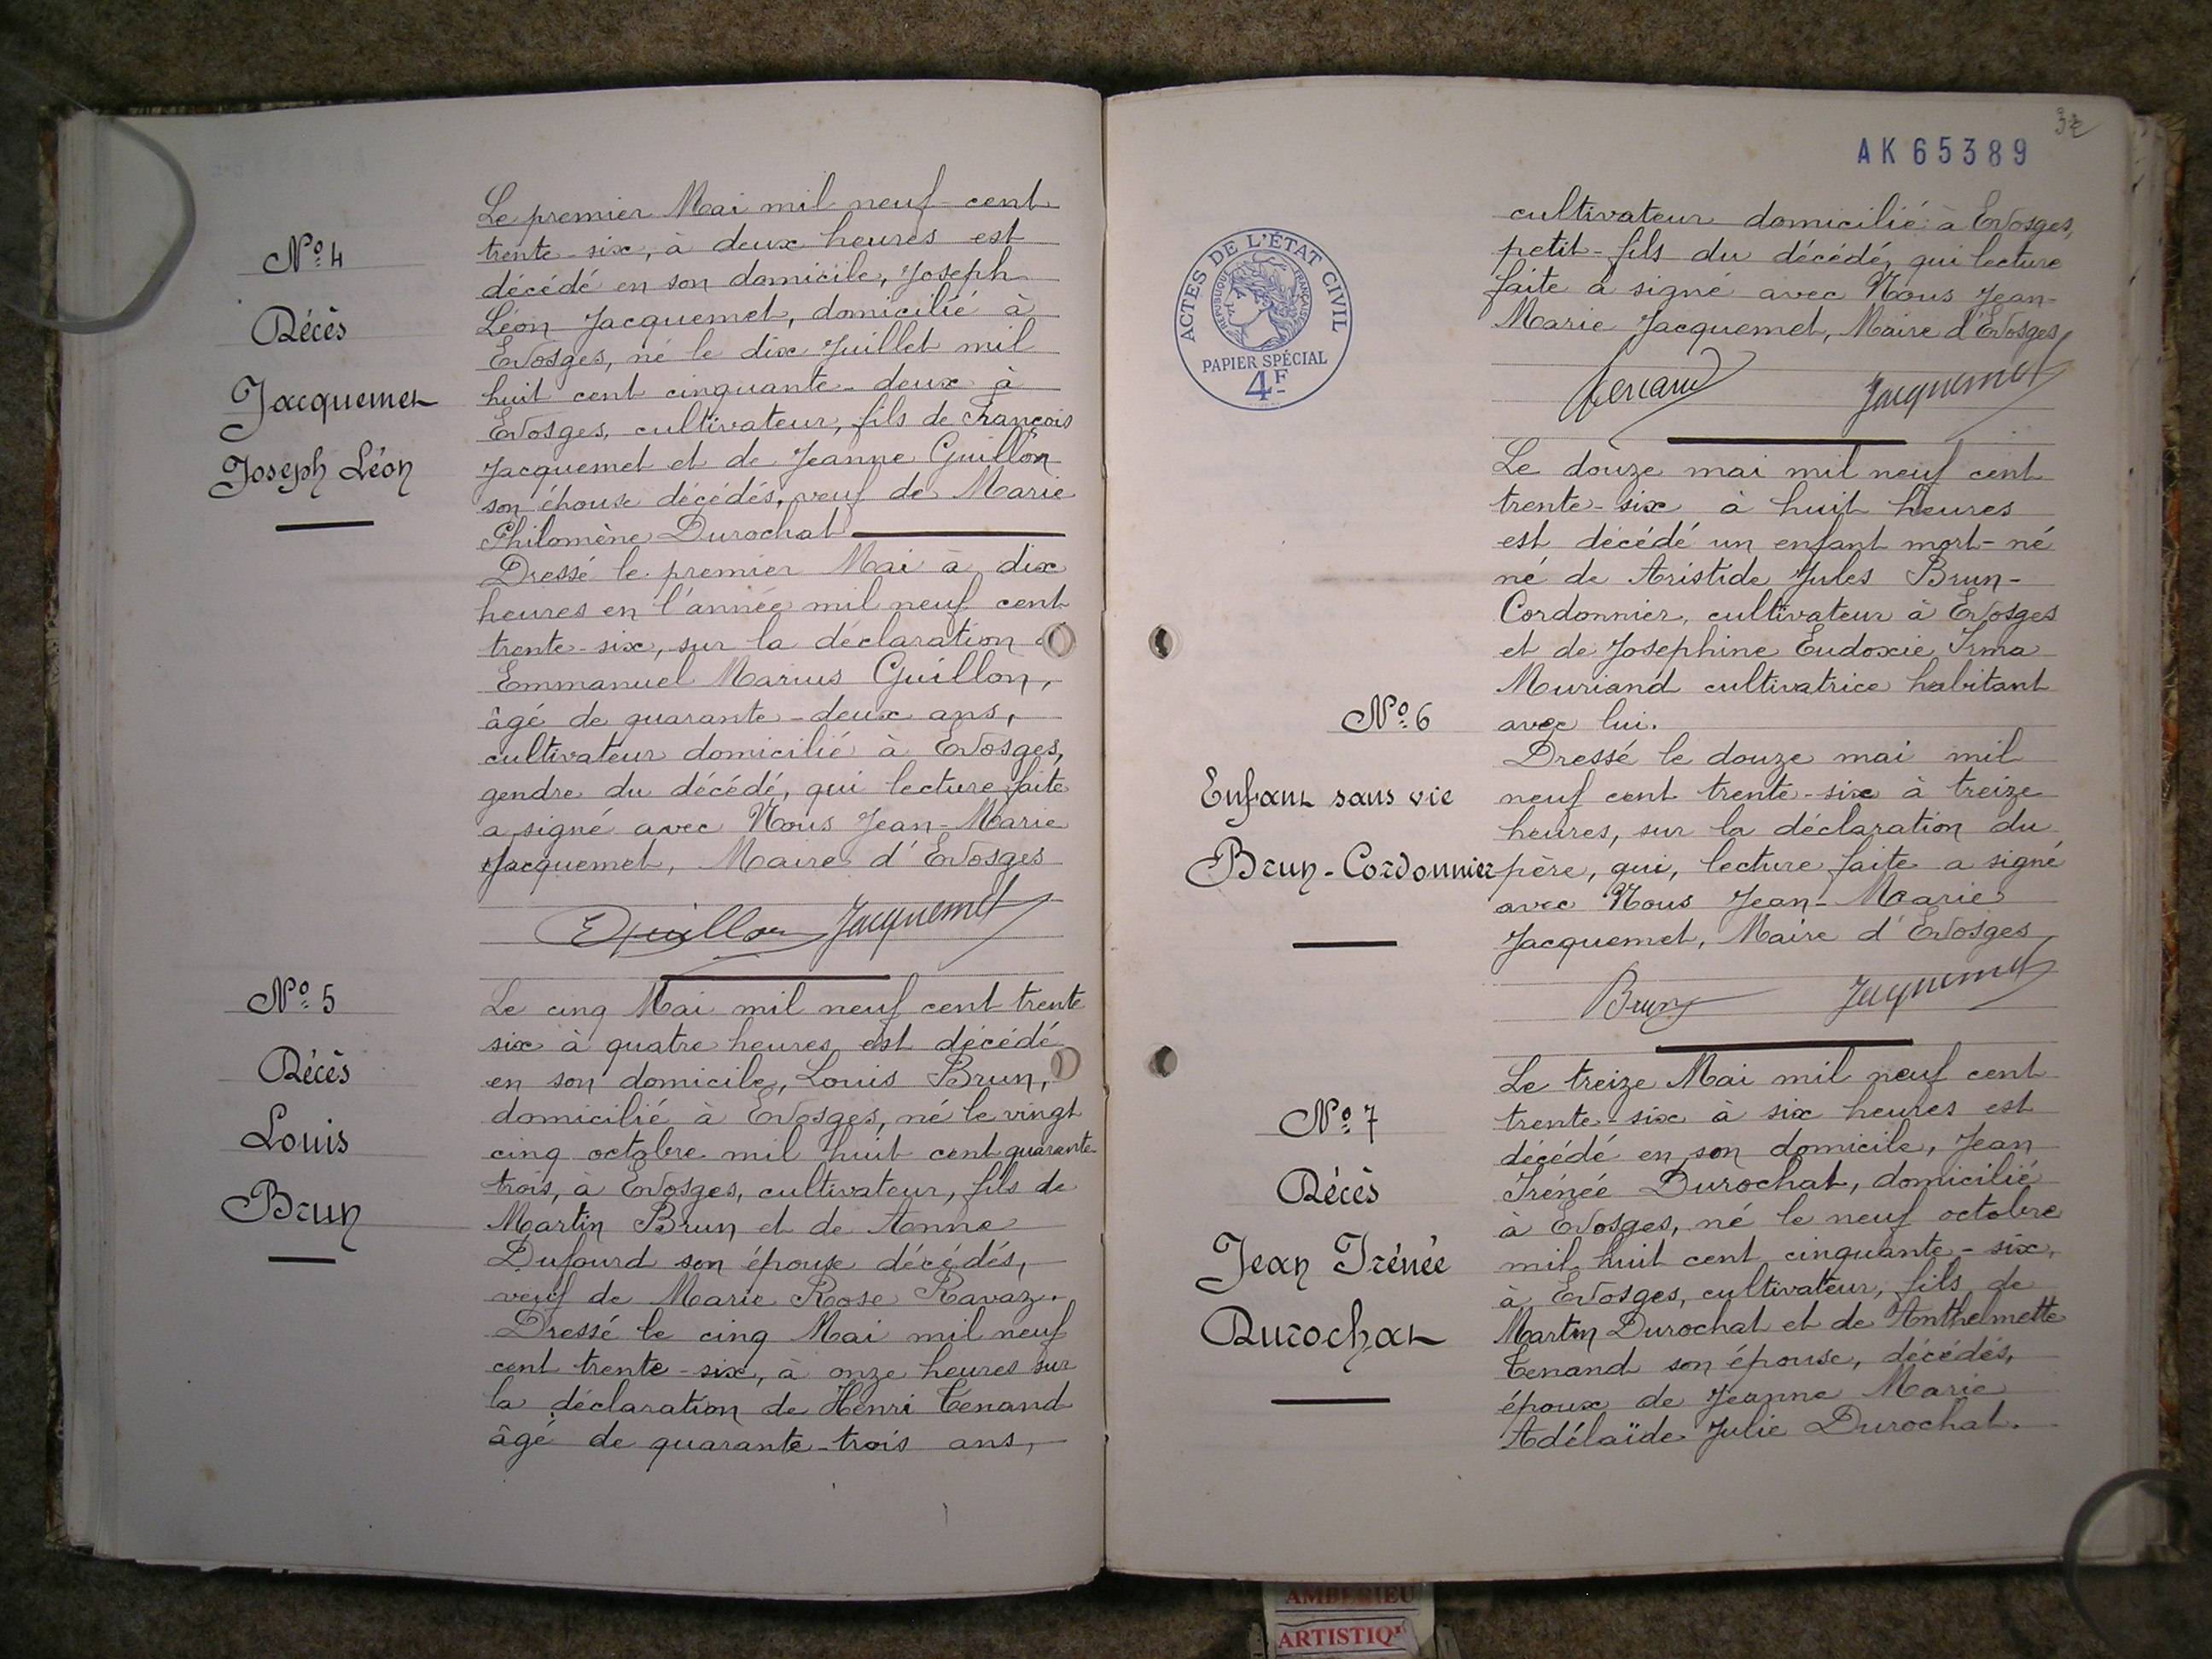 Nº 4
Décès
Jacquemet
Joseph Léon
Le premier Mai mil neuf cent
trente-six, à deux heures est
décédé en son domicile, Joseph
Léon Jacquemet, domicilié à
Evosges, né le dix Juillet mil
huit cent cinquante-deux à
Evosges, cultivateur, fils de François
Jacquemet et de Jeanne Guillon
son épouse décédés, veuf de Marie
Philomène Durochat
Dressé le premier Mai à dix
heures en l'année mil neuf cent
trente-six, sur la déclaration
Emmanuel Marius Guillon,
âgé de quarante-deux ans,
cultivateur domicilié à Evosges,
gendre du décédé, qui lecture faite
a signé avec Nous Jean-Marie
Jacquemet, Maire d'Evosges
EGuillon Jacquemet
Nº 5
Décès
Louis
Brun
Le cinq Mai mil neuf cent trente
six à quatre heures est décédé
en son domicile, Louis Brun,
domicilié à Evosges, né le vingt
cinq octobre mil huit cent quarante-
trois, à Evosges, cultivateur, fils de
Martin Brun et de Anne
Dufourd son épouse décédés,
veuf de Marie Rose Ravaz.
Dressé le cinq Mai mil neuf
cent trente-six, à onze heures sur
la déclaration de Henri Tenand
âgé de quarante-trois ans,
32
AK65389
ACTES DE L'ÉTAT CIVIL
RÉPUBLIQUE FRANÇAISE
PAPIER SPÉCIAL
4F
cultivateur domicilié à Evosges,
petit-fils du décédé, qui lecture
faite a signé avec Nous Jean-
Marie Jacquemet, Maire d'Evosges
Tenand Jacquemet
Le douze mai mil neuf cent
trente-six à huit heures
est décédé un enfant mort-né
né de Aristide Jules Brun-
Cordonnier, cultivateur à Evosges
et de Josephine Eudoxie Irma
Muriand cultivatrice habitant
avec lui.
Nº 6
Enfant sans vie
Brun-Cordonnier
Dressé le douze mai mil
neuf cent trente-six à treize
heures, sur la déclaration du
père, qui, lecture faite a signé
avec Nous Jean-Marie
Jacquemet, Maire d'Evosges
Brun Jacquemet
Nº 7
Décès
Jean Irénée
Durochat
Le treize Mai mil neuf cent
trente-six à six heures est
décédé en son domicile, Jean
Irénée Durochat, domicilié
à Evosges, né le neuf octobre
mil huit cent cinquante-six,
à Evosges, cultivateur, fils de
Martin Durochat et de Anthelmette
Tenand son épouse, décédés,
époux de Jeanne Marie
Adélaïde Julie Durochat.
AMBERIEU
ARTISTIQ